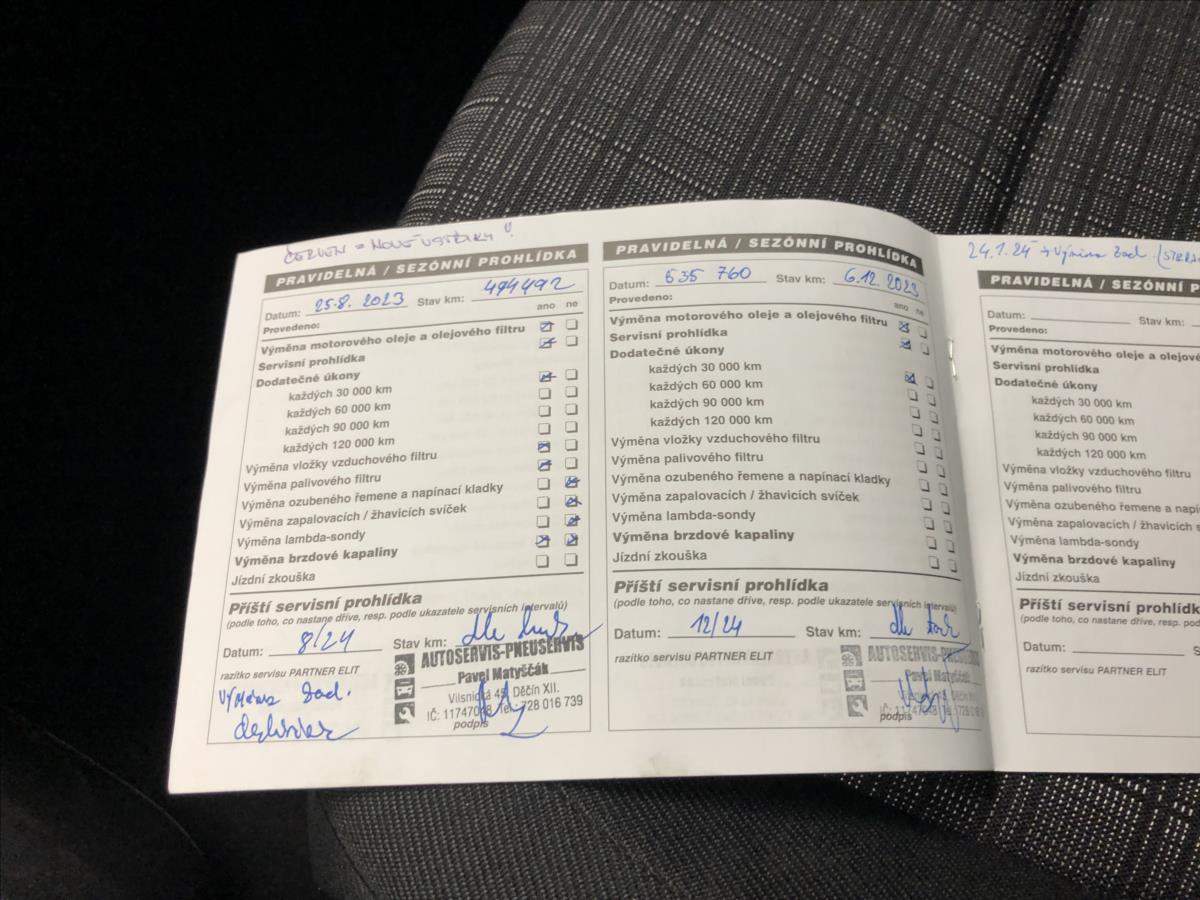 ČERVEN = NOVÉ VSTŘIKY !
PRAVIDELNÁ / SEZÓNNÍ PROHLÍDKA
Datum: 25.8. 2023 Stav km: 494492
Provedeno: ano ne
Výměna motorového oleje a olejového filtru
Servisní prohlídka
Dodatečné úkony
každých 30 000 km
každých 60 000 km
každých 90 000 km
každých 120 000 km
Výměna vložky vzduchového filtru
Výměna palivového filtru
Výměna ozubeného řemene a napínací kladky
Výměna zapalovacích / žhavicích svíček
Výměna lambda-sondy
Výměna brzdové kapaliny
Jízdní zkouška
Příští servisní prohlídka
(podle toho, co nastane dříve, resp. podle ukazatele servisních intervalů)
Datum: 8/24 Stav km: dle
razítko servisu PARTNER ELIT
AUTOSERVIS-PNEUSERVIS
Pavel Matyščák
Vilsnická 45, Děčín XII.
IČ: 11747048 Tel. 728 016 739
podpis
výměna zad.
PRAVIDELNÁ / SEZÓNNÍ PROHLÍDKA
Datum: 535 760 Stav km: 6.12. 2023
Provedeno: ano ne
Výměna motorového oleje a olejového filtru
Servisní prohlídka
Dodatečné úkony
každých 30 000 km
každých 60 000 km
každých 90 000 km
každých 120 000 km
Výměna vložky vzduchového filtru
Výměna palivového filtru
Výměna ozubeného řemene a napínací kladky
Výměna zapalovacích / žhavicích svíček
Výměna lambda-sondy
Výměna brzdové kapaliny
Jízdní zkouška
Příští servisní prohlídka
(podle toho, co nastane dříve, resp. podle ukazatele servisních intervalů)
Datum: 12/24 Stav km: dle
razítko servisu PARTNER ELIT
AUTOSERVIS-PNEUSERVIS
Pavel Matyščák
Děčín XII.
IČ: 11747048 Tel. 728 016
podpis
24.1.24 → výměna zad.
PRAVIDELNÁ / SEZÓNNÍ P
Datum: Stav km:
Provedeno:
Výměna motorového oleje a olejové
Servisní prohlídka
Dodatečné úkony
každých 30 000 km
každých 60 000 km
každých 90 000 km
každých 120 000 km
Výměna vložky vzduchového filtru
Výměna palivového filtru
Výměna ozubeného řemene a napín
Výměna zapalovacích / žhavicích s
Výměna lambda-sondy
Výměna brzdové kapaliny
Jízdní zkouška
Příští servisní prohlídk
(podle toho, co nastane dříve, resp. pod
Datum: S
razítko servisu PARTNER ELIT